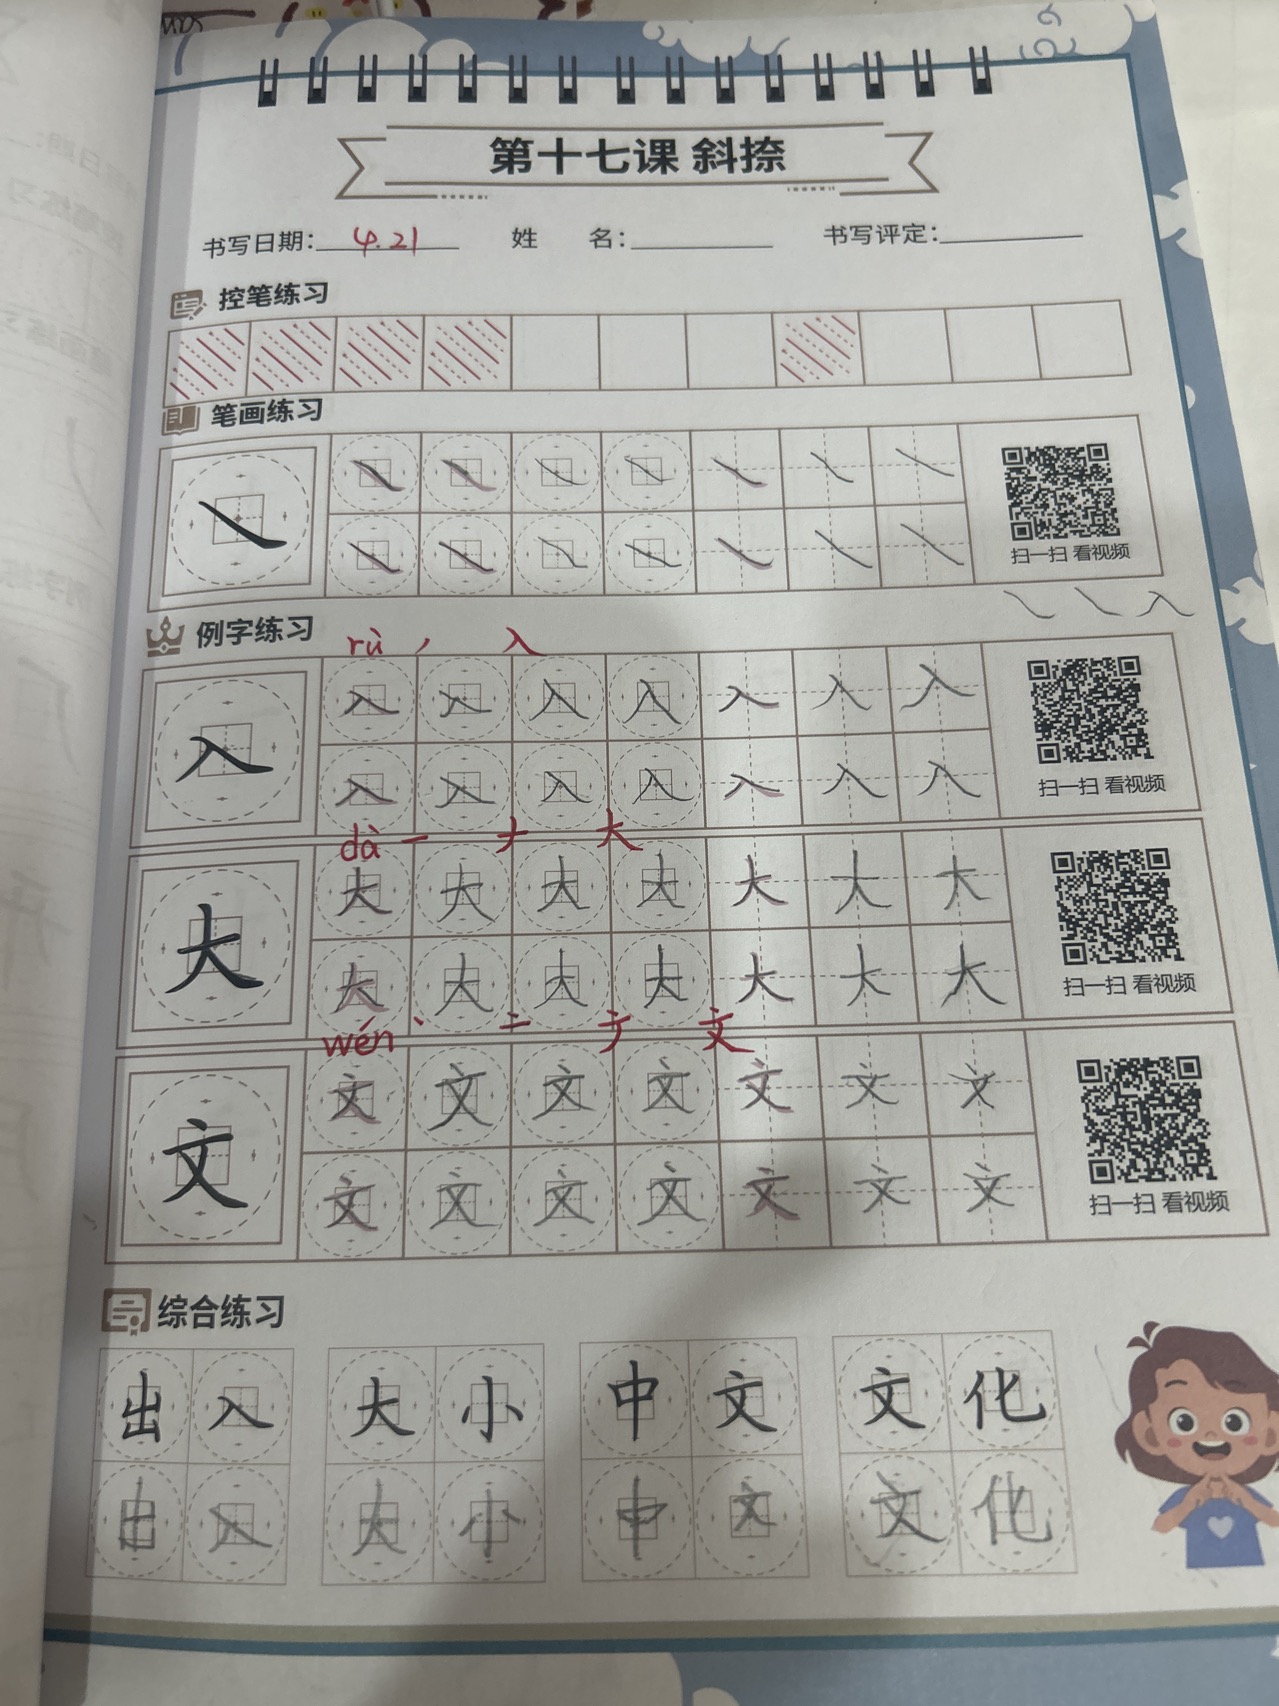 第十七课 斜捺
书写日期： 4.21 姓 名： 书写评定：
控笔练习
笔画练习
扫一扫 看视频
例字练习
rù ノ 入
入 入 入 入 入 入 入 入
入 入 入 入 入 入 入
扫一扫 看视频
dà 一 ナ 大
大 大 大 大 大 大 大 大
大 大 大 大 大 大 大
扫一扫 看视频
wén 丶 亠 ナ 文
文 文 文 文 文 文 文 文
文 文 文 文 文 文 文
扫一扫 看视频
综合练习
出 入 大 小 中 文 文 化
出 入 大 小 中 文 文 化